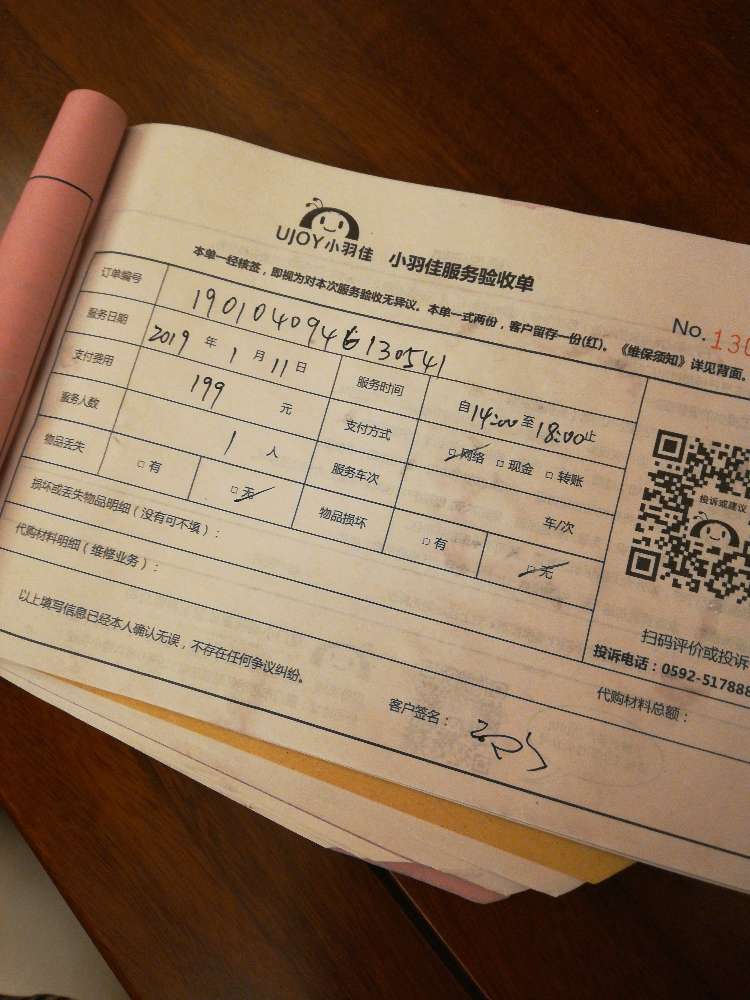 UJOY小羽佳 小羽佳服务验收单
本单一经核签，即视为对本次服务验收无异议。本单一式两份，客户留存一份(红)。《维保须知》详见背面。
No.130
订单编号 190104094G130541
服务日期 2019 年 1 月 11 日 服务时间 自14:00至18:00止
支付费用 199 元 支付方式 □网络 □现金 □转账
服务人数 1 人 服务车次 车/次
物品丢失 □有 □无 物品损坏 □有 □无
损坏或丢失物品明细（没有可不填）：
代购材料明细（维修业务）：
代购材料总额：
投诉或建议
扫码评价或投诉
投诉电话：0592-517888
以上填写信息已经本人确认无误，不存在任何争议纠纷。
客户签名：